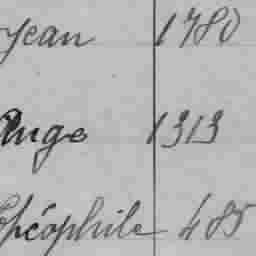 Jean 1780
Ange 1313
Théophile 485